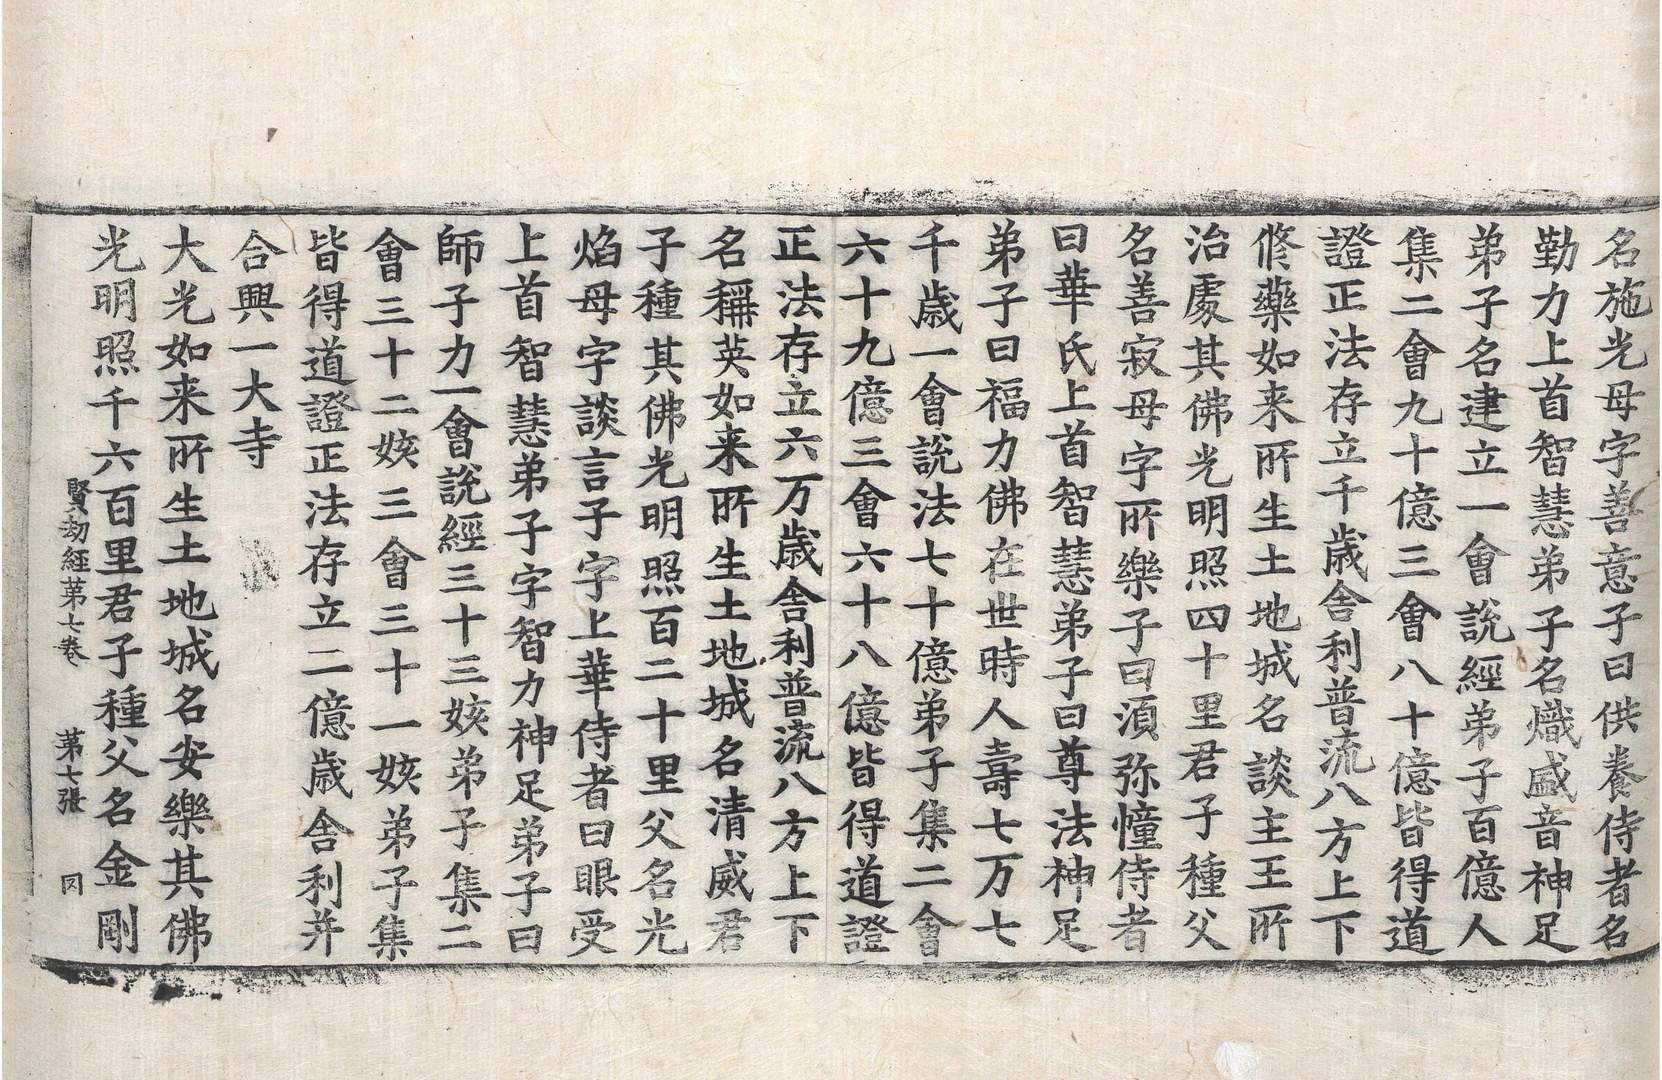 名施光母字善意子曰供養侍者名
勤力上首智慧弟子名熾盛音神足
弟子名建立一會說經弟子百億人
集二會九十億三會八十億皆得道
證正法存立千歲舍利普流八方上下
修藥如来所生土地城名談主王所
治處其佛光明照四十里君子種父
名善寂母字所樂子曰湏弥憧侍者
曰華氏上首智慧弟子曰尊法神足
弟子曰福力佛在世時人壽七万七
千歲一會說法七十億弟子集二會
六十九億三會六十八億皆得道證
正法存立六万歲舍利普流八方上下
名稱英如来所生土地城名清威君
子種其佛光明照百二十里父名光
焰母字談言子字上華侍者曰眼受
上首智慧弟子字智力神足弟子曰
師子力一會說經三十三姟弟子集二
會三十二姟三會三十一姟弟子集
皆得道證正法存立二億歲舍利并
合興一大寺
大光如来所生土地城名安樂其佛
光明照千六百里君子種父名金剛
賢劫經第七卷 第七張 冈